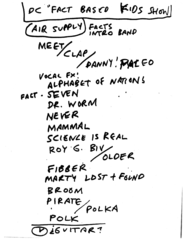 DC "FACT BASED KIDS SHOW"
AIR SUPPLY FACTS
INTRO BAND
MEET/
CLAP/
DANNY! PALEO
VOCAL FX!
ALPHABET OF NATIONS
FACT - SEVEN
DR. WORM
NEVER
MAMMAL
SCIENCE IS REAL
ROY G. BIV/
OLDER
FIBBER
MARTY LOST + FOUND
BROOM
PIRATE/
POLKA
POLK
¿GUITAR?